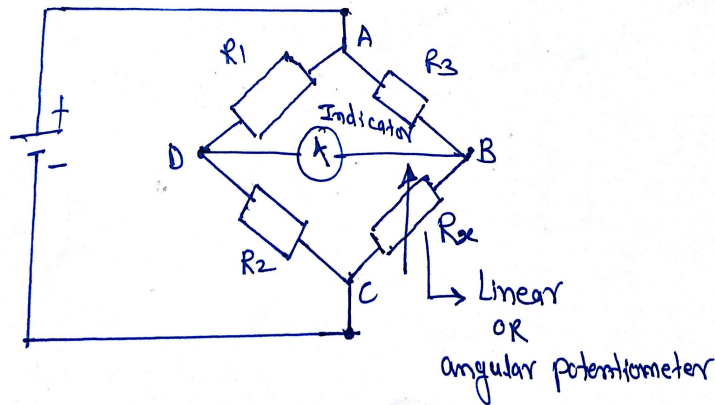 A
R1
R3
+
Indicator
D
A
B
-
R2
Rx
C
Linear
OR
angular potentiometer